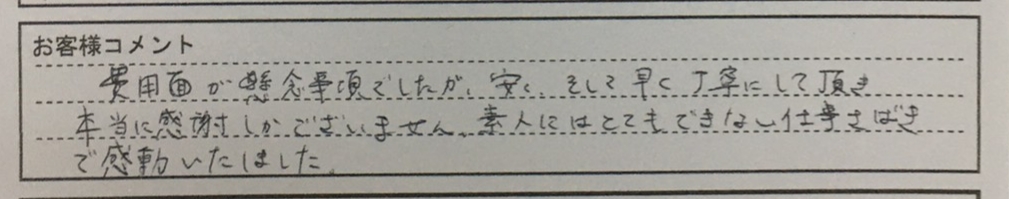 お客様コメント
費用面が懸念事項でしたが、安く、そして早く丁寧にして頂き
本当に感謝しかございません。素人にはとてもできない仕事さばき
で感動いたしました。